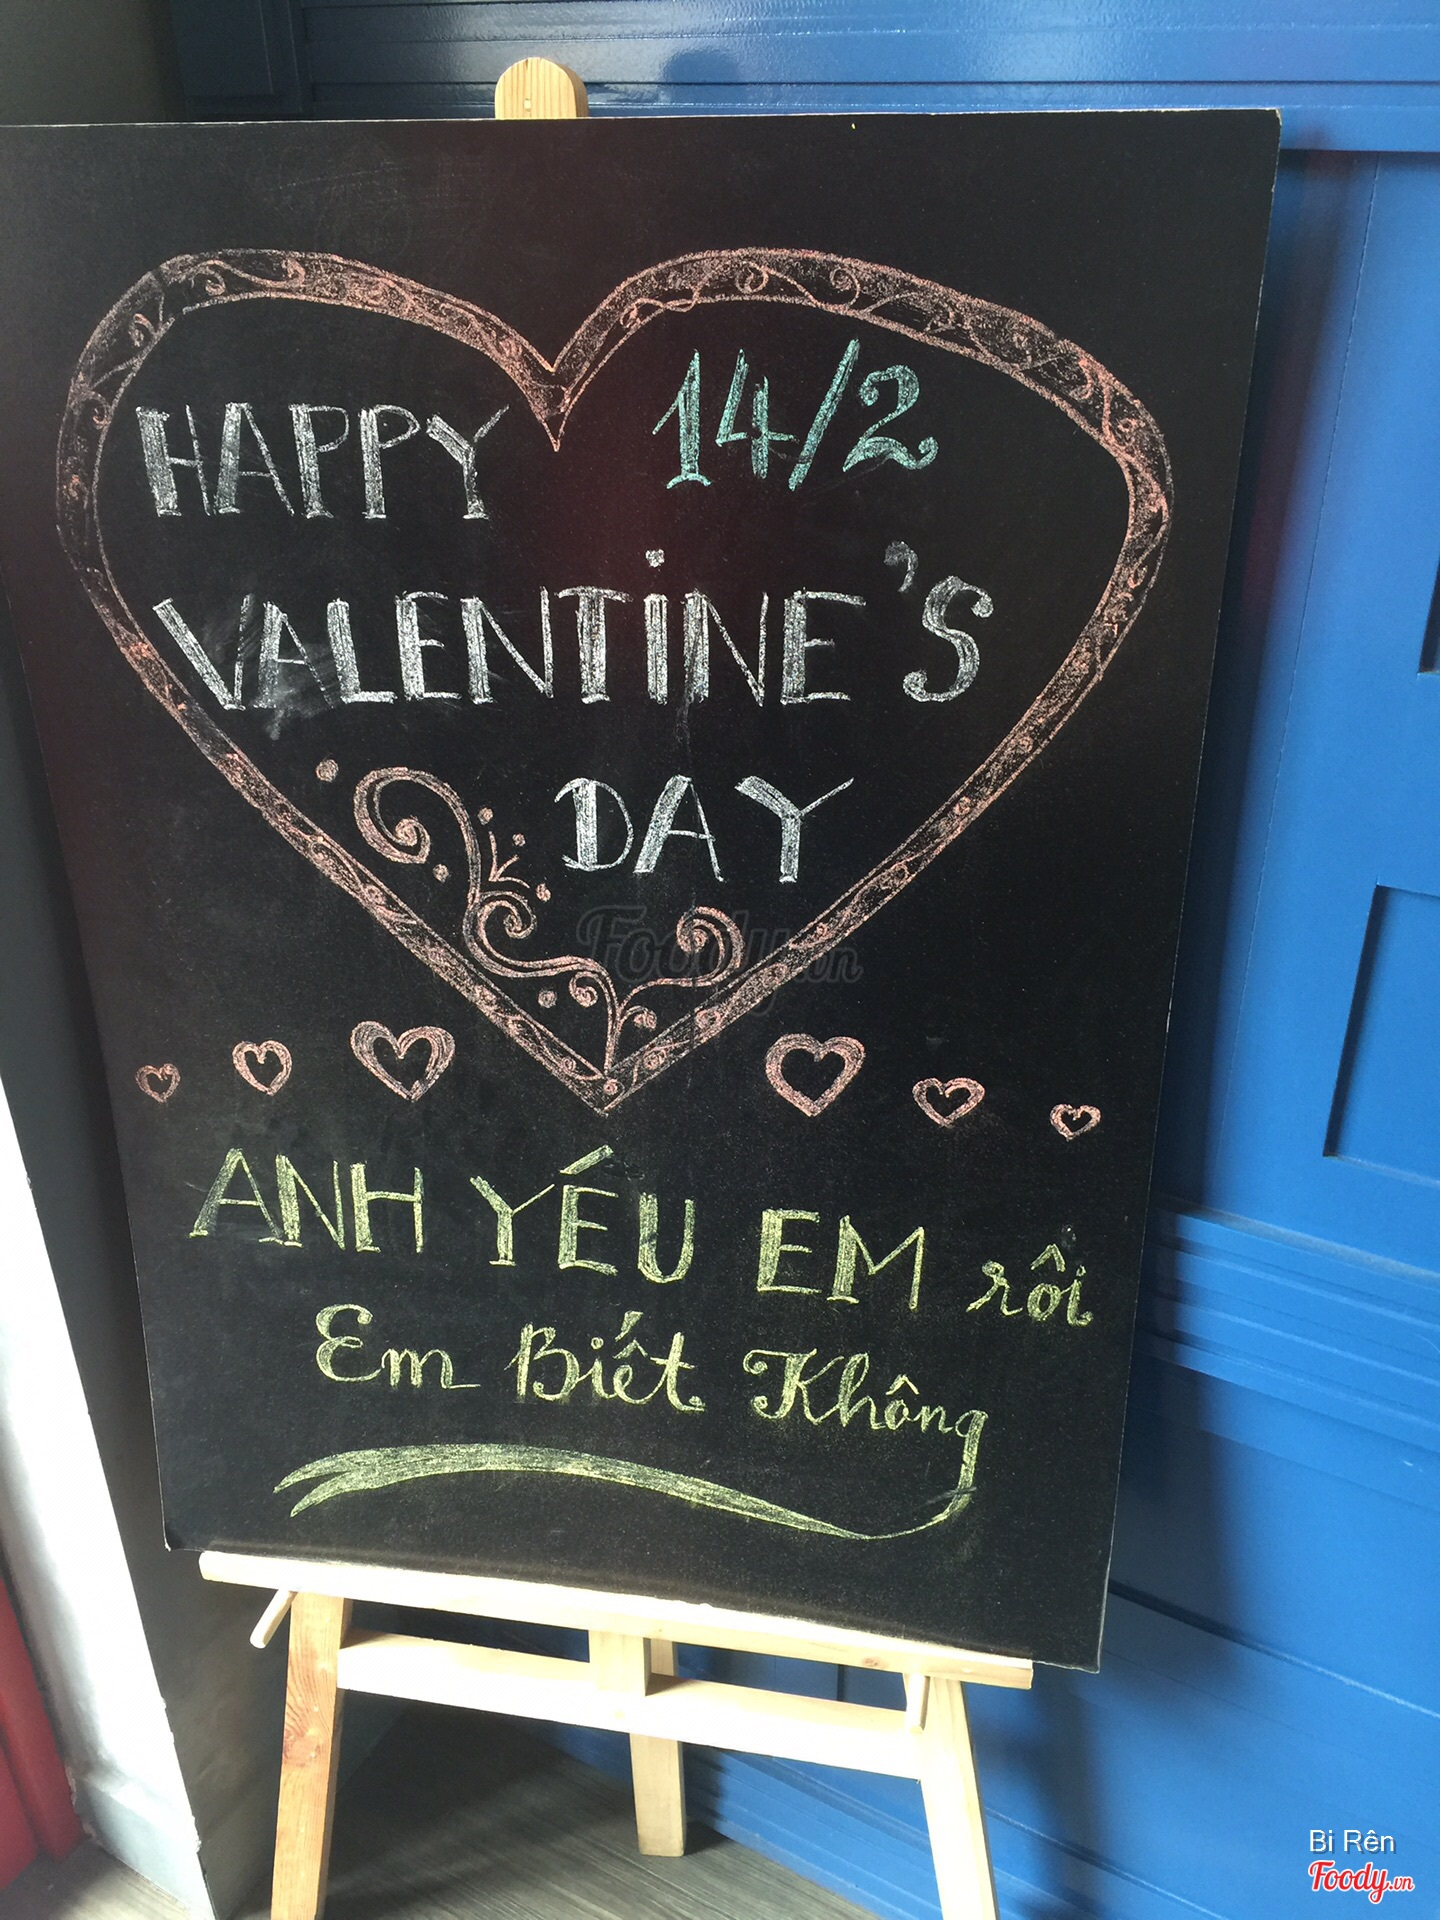 HAPPY 14/2
VALENTINE'S
DAY
Foody.vn
ANH YÊU EM rồi
Em Biết Không
Bi Rên
Foody.vn